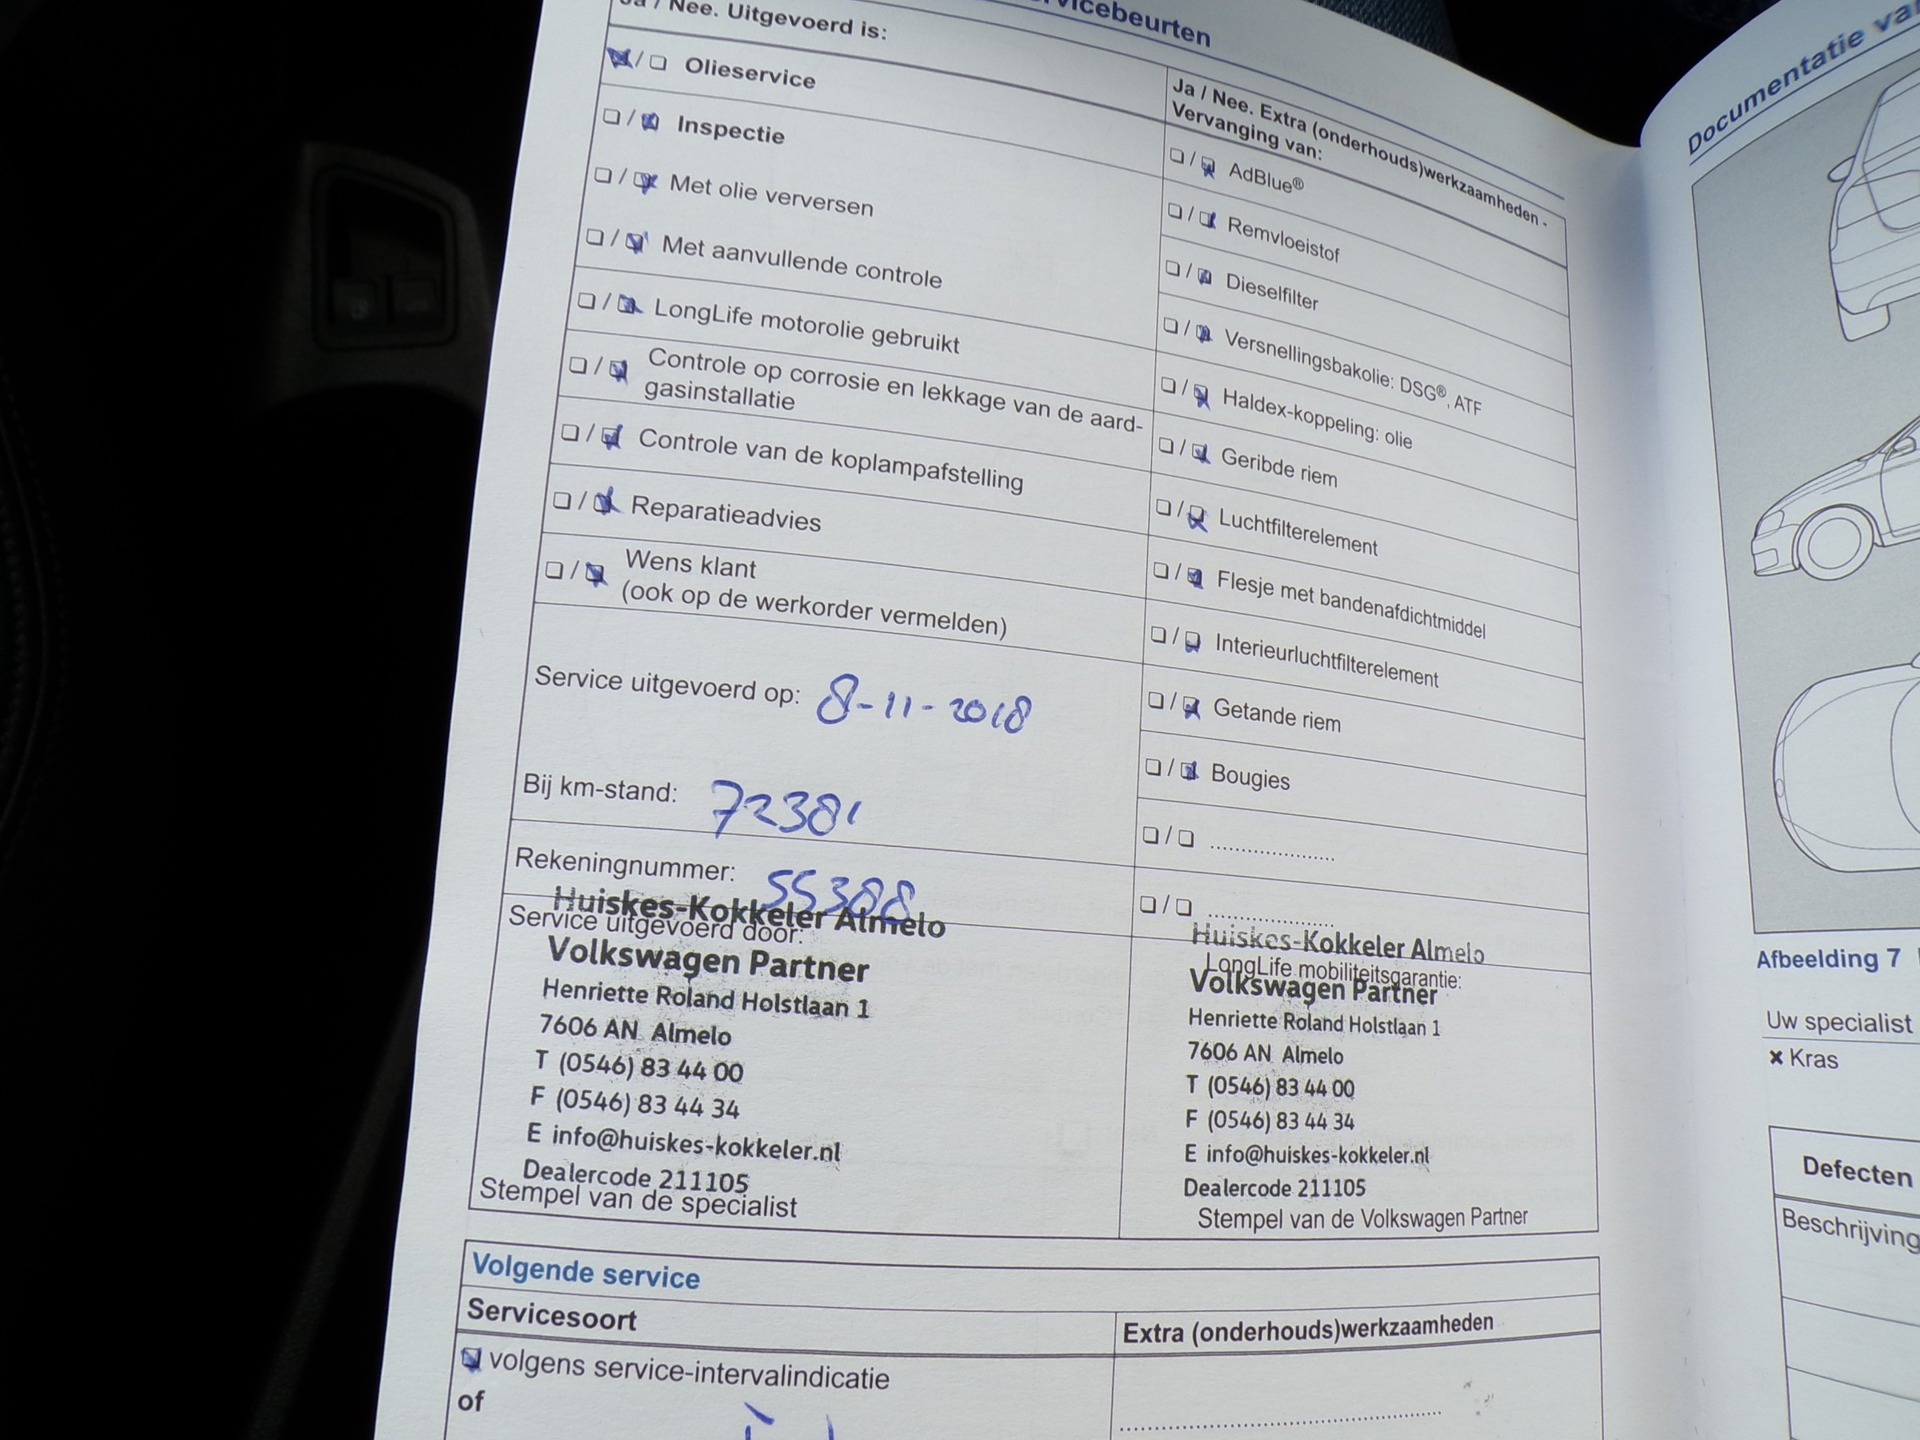 Servicebeurten
Ja / Nee. Uitgevoerd is:
Olieservice
Inspectie
Met olie verversen
Met aanvullende controle
LongLife motorolie gebruikt
Controle op corrosie en lekkage van de aard-
gasinstallatie
Controle van de koplampafstelling
Reparatieadvies
Wens klant
(ook op de werkorder vermelden)
Service uitgevoerd op: 8-11-2018
Bij km-stand: 72381
Rekeningnummer: 55388
Service uitgevoerd door:
Huiskes-Kokkeler Almelo
Volkswagen Partner
Henriette Roland Holstlaan 1
7606 AN Almelo
T (0546) 83 44 00
F (0546) 83 44 34
E info@huiskes-kokkeler.nl
Dealercode 211105
Stempel van de specialist
Ja / Nee. Extra (onderhouds)werkzaamheden -
Vervanging van:
AdBlue®
Remvloeistof
Dieselfilter
Versnellingsbakolie: DSG®, ATF
Haldex-koppeling: olie
Geribde riem
Luchtfilterelement
Flesje met bandenafdichtmiddel
Interieurluchtfilterelement
Getande riem
Bougies
LongLife mobiliteitsgarantie:
Huiskes-Kokkeler Almelo
Volkswagen Partner
Henriette Roland Holstlaan 1
7606 AN Almelo
T (0546) 83 44 00
F (0546) 83 44 34
E info@huiskes-kokkeler.nl
Dealercode 211105
Stempel van de Volkswagen Partner
Volgende service
Servicesoort
volgens service-intervalindicatie
of
Extra (onderhouds)werkzaamheden
Documentatie van
Afbeelding 7
Uw specialist
× Kras
Defecten
Beschrijving